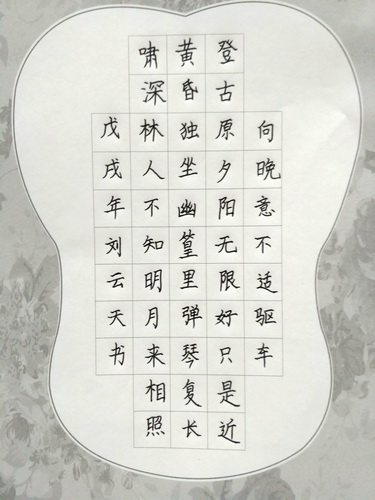 向晚意不适驱车
登古原夕阳无限好只是近
黄昏独坐幽篁里弹琴复长
啸深林人不知明月来相照
戊戌年刘云天书